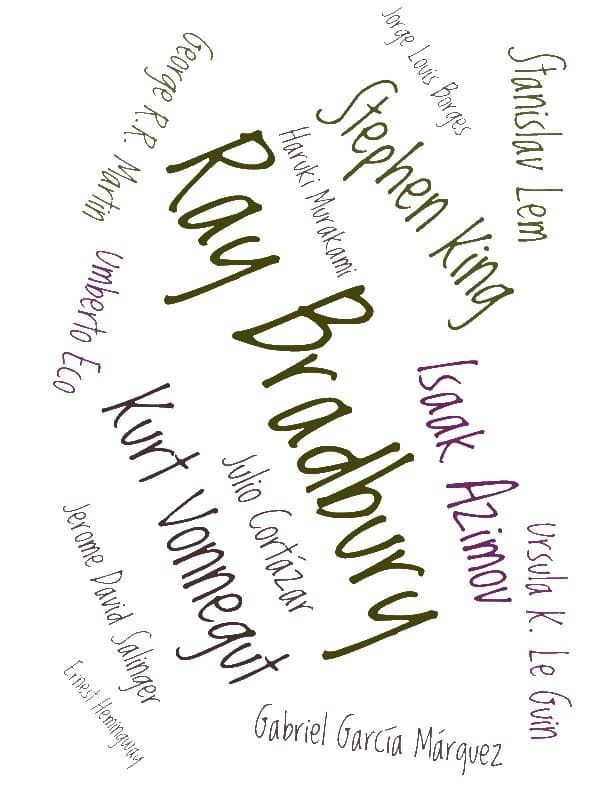 Jorge Louis Borges
Stanislav Lem
George R.R. Martin
Stephen King
Haruki Murakami
Ray Bradbury
Umberto Eco
Isaak Azimov
Kurt Vonnegut
Julio Cortázar
Ursula K. Le Guin
Jerome David Salinger
Ernest Hemingway
Gabriel García Márquez